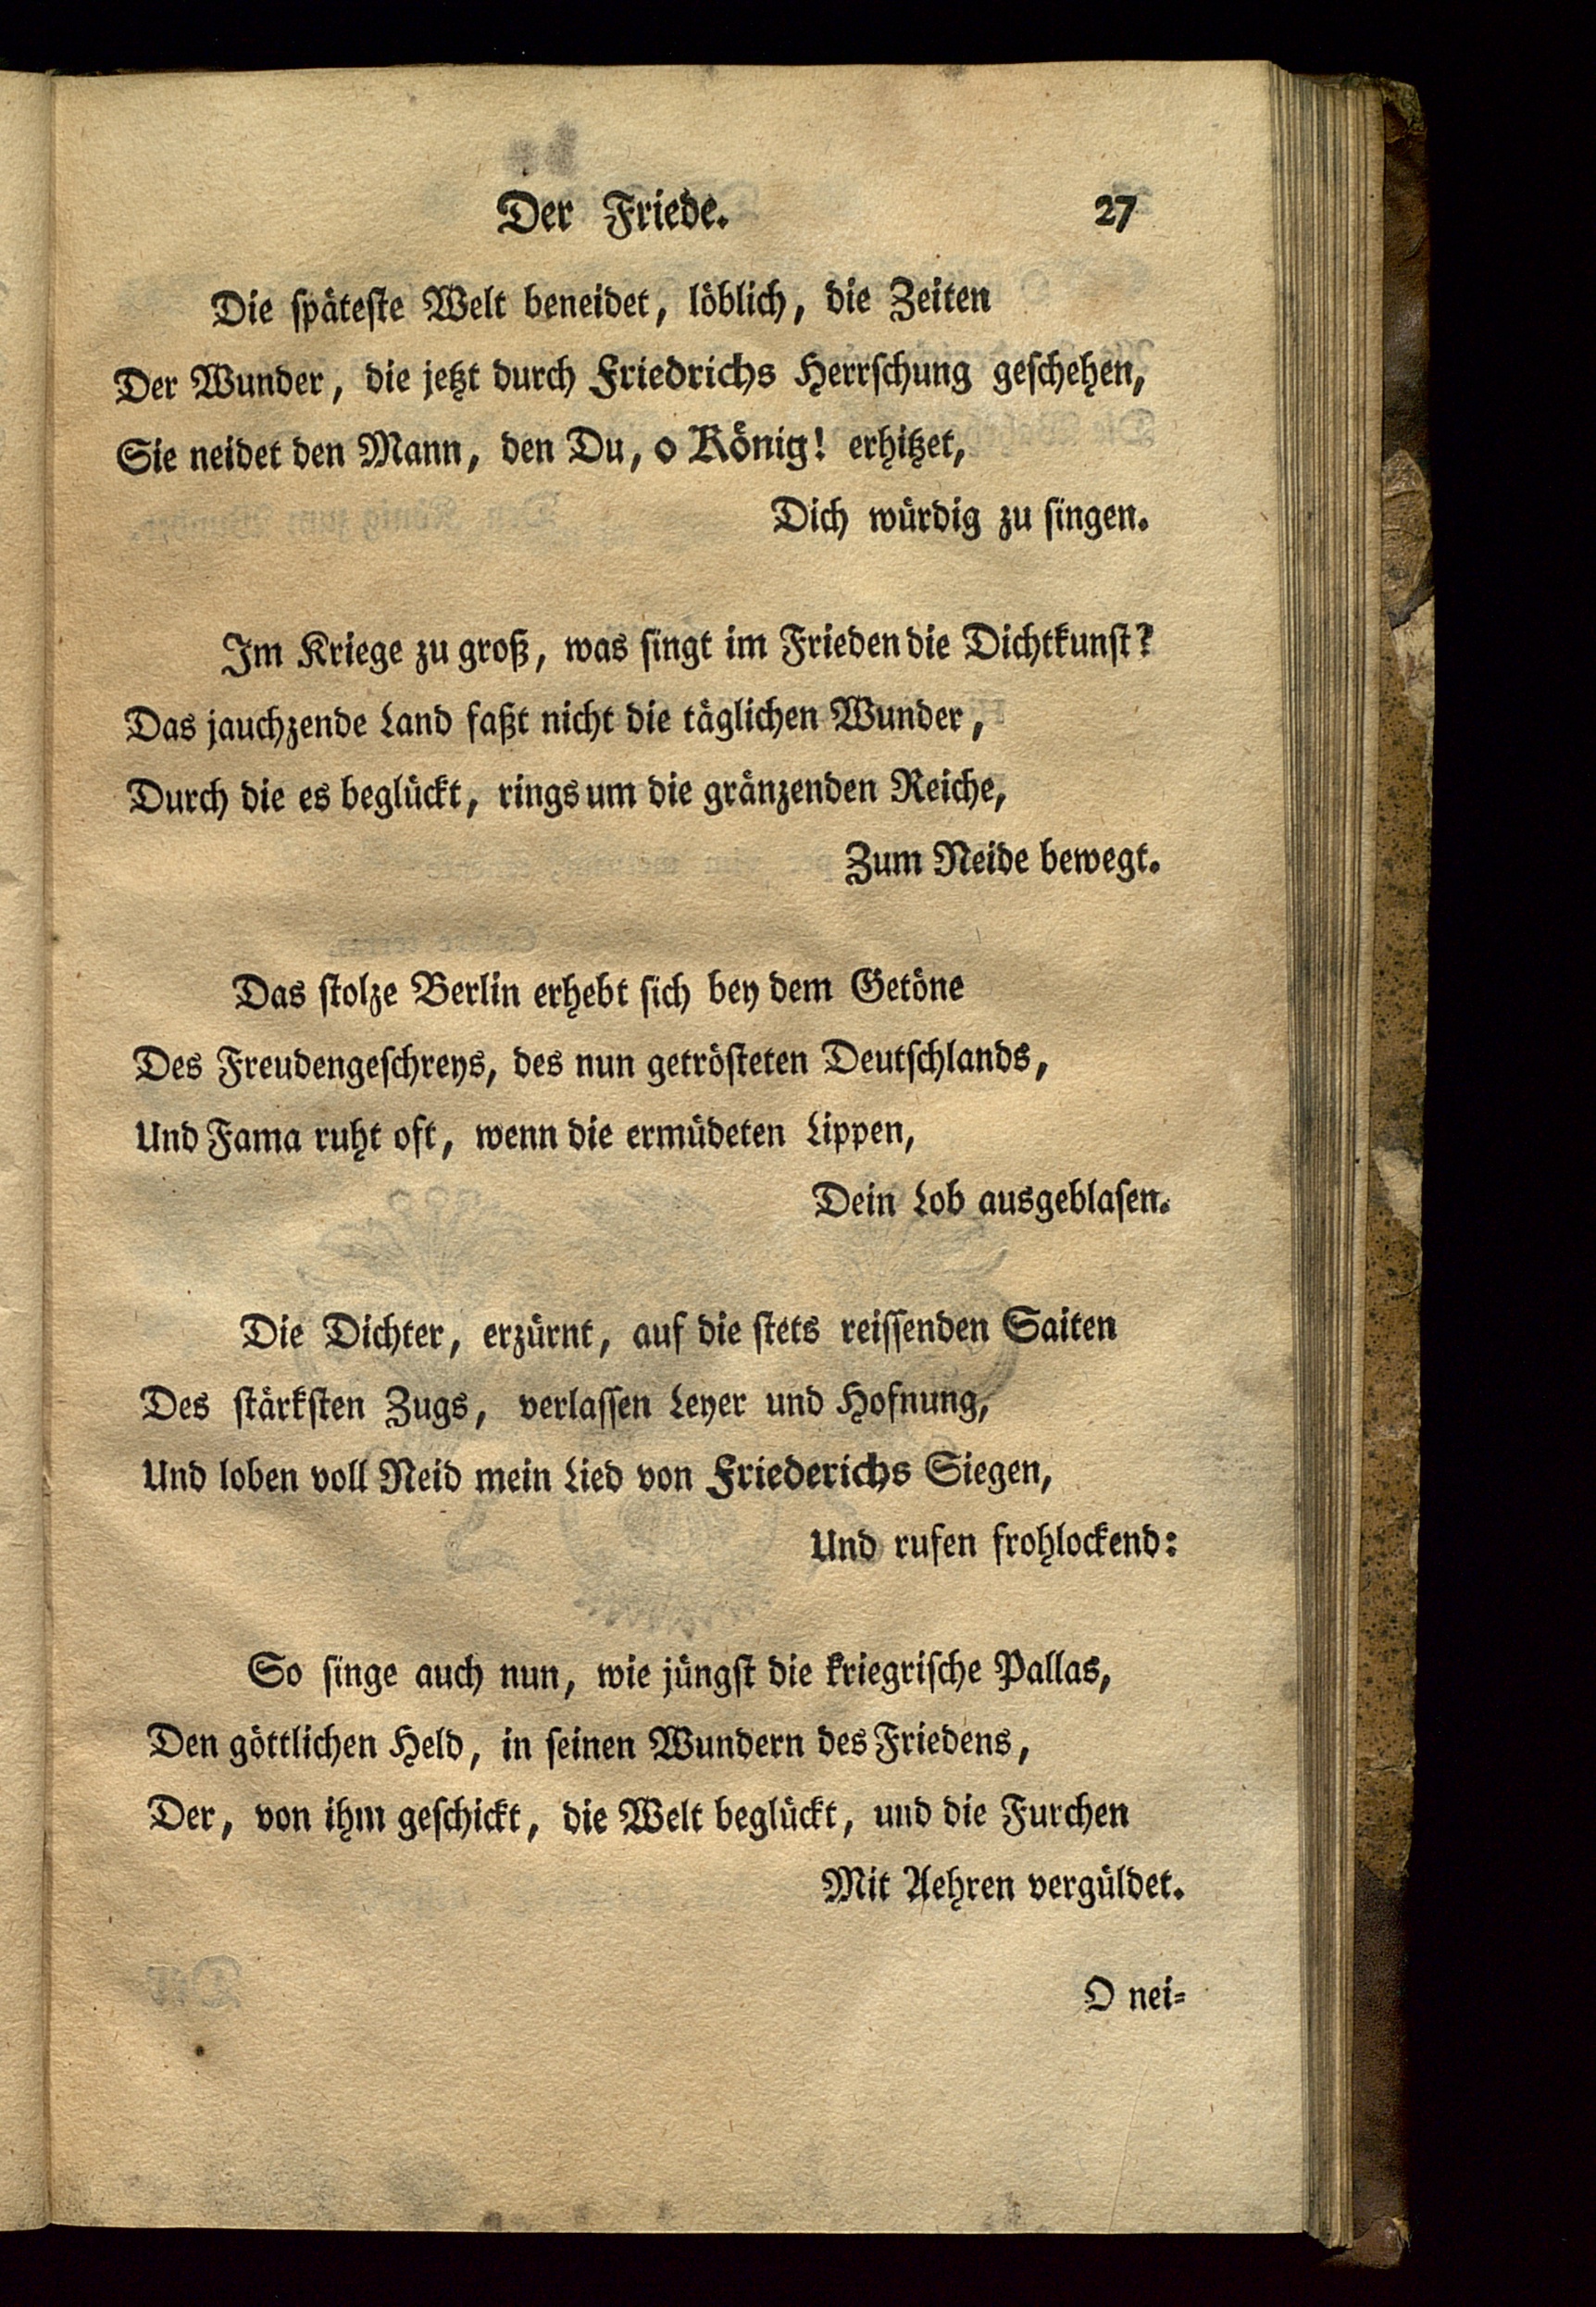 Der Friede. 27
Die späteste Welt beneidet, löblich, die Zeiten
Der Wunder, die jetzt durch Friedrichs Herrschung geschehen,
Sie neidet den Mann, den Du, o König! erhitzet,
Dich würdig zu singen.
Im Kriege zu groß, was singt im Frieden die Dichtkunst?
Das jauchzende Land faßt nicht die täglichen Wunder,
Durch die es beglückt, rings um die gränzenden Reiche,
Zum Neide bewegt.
Das stolze Berlin erhebt sich bey dem Getöne
Des Freudengeschreys, des nun getrösteten Deutschlands,
Und Fama ruht oft, wenn die ermüdeten Lippen,
Dein Lob ausgeblasen.
Die Dichter, erzürnt, auf die stets reissenden Saiten
Des stärksten Zugs, verlassen Leyer und Hofnung,
Und loben voll Neid mein Lied von Friederichs Siegen,
Und rufen frohlockend:
So singe auch nun, wie jüngst die kriegrische Pallas,
Den göttlichen Held, in seinen Wundern des Friedens,
Der, von ihm geschickt, die Welt beglückt, und die Furchen
Mit Aehren vergüldet.
O nei-